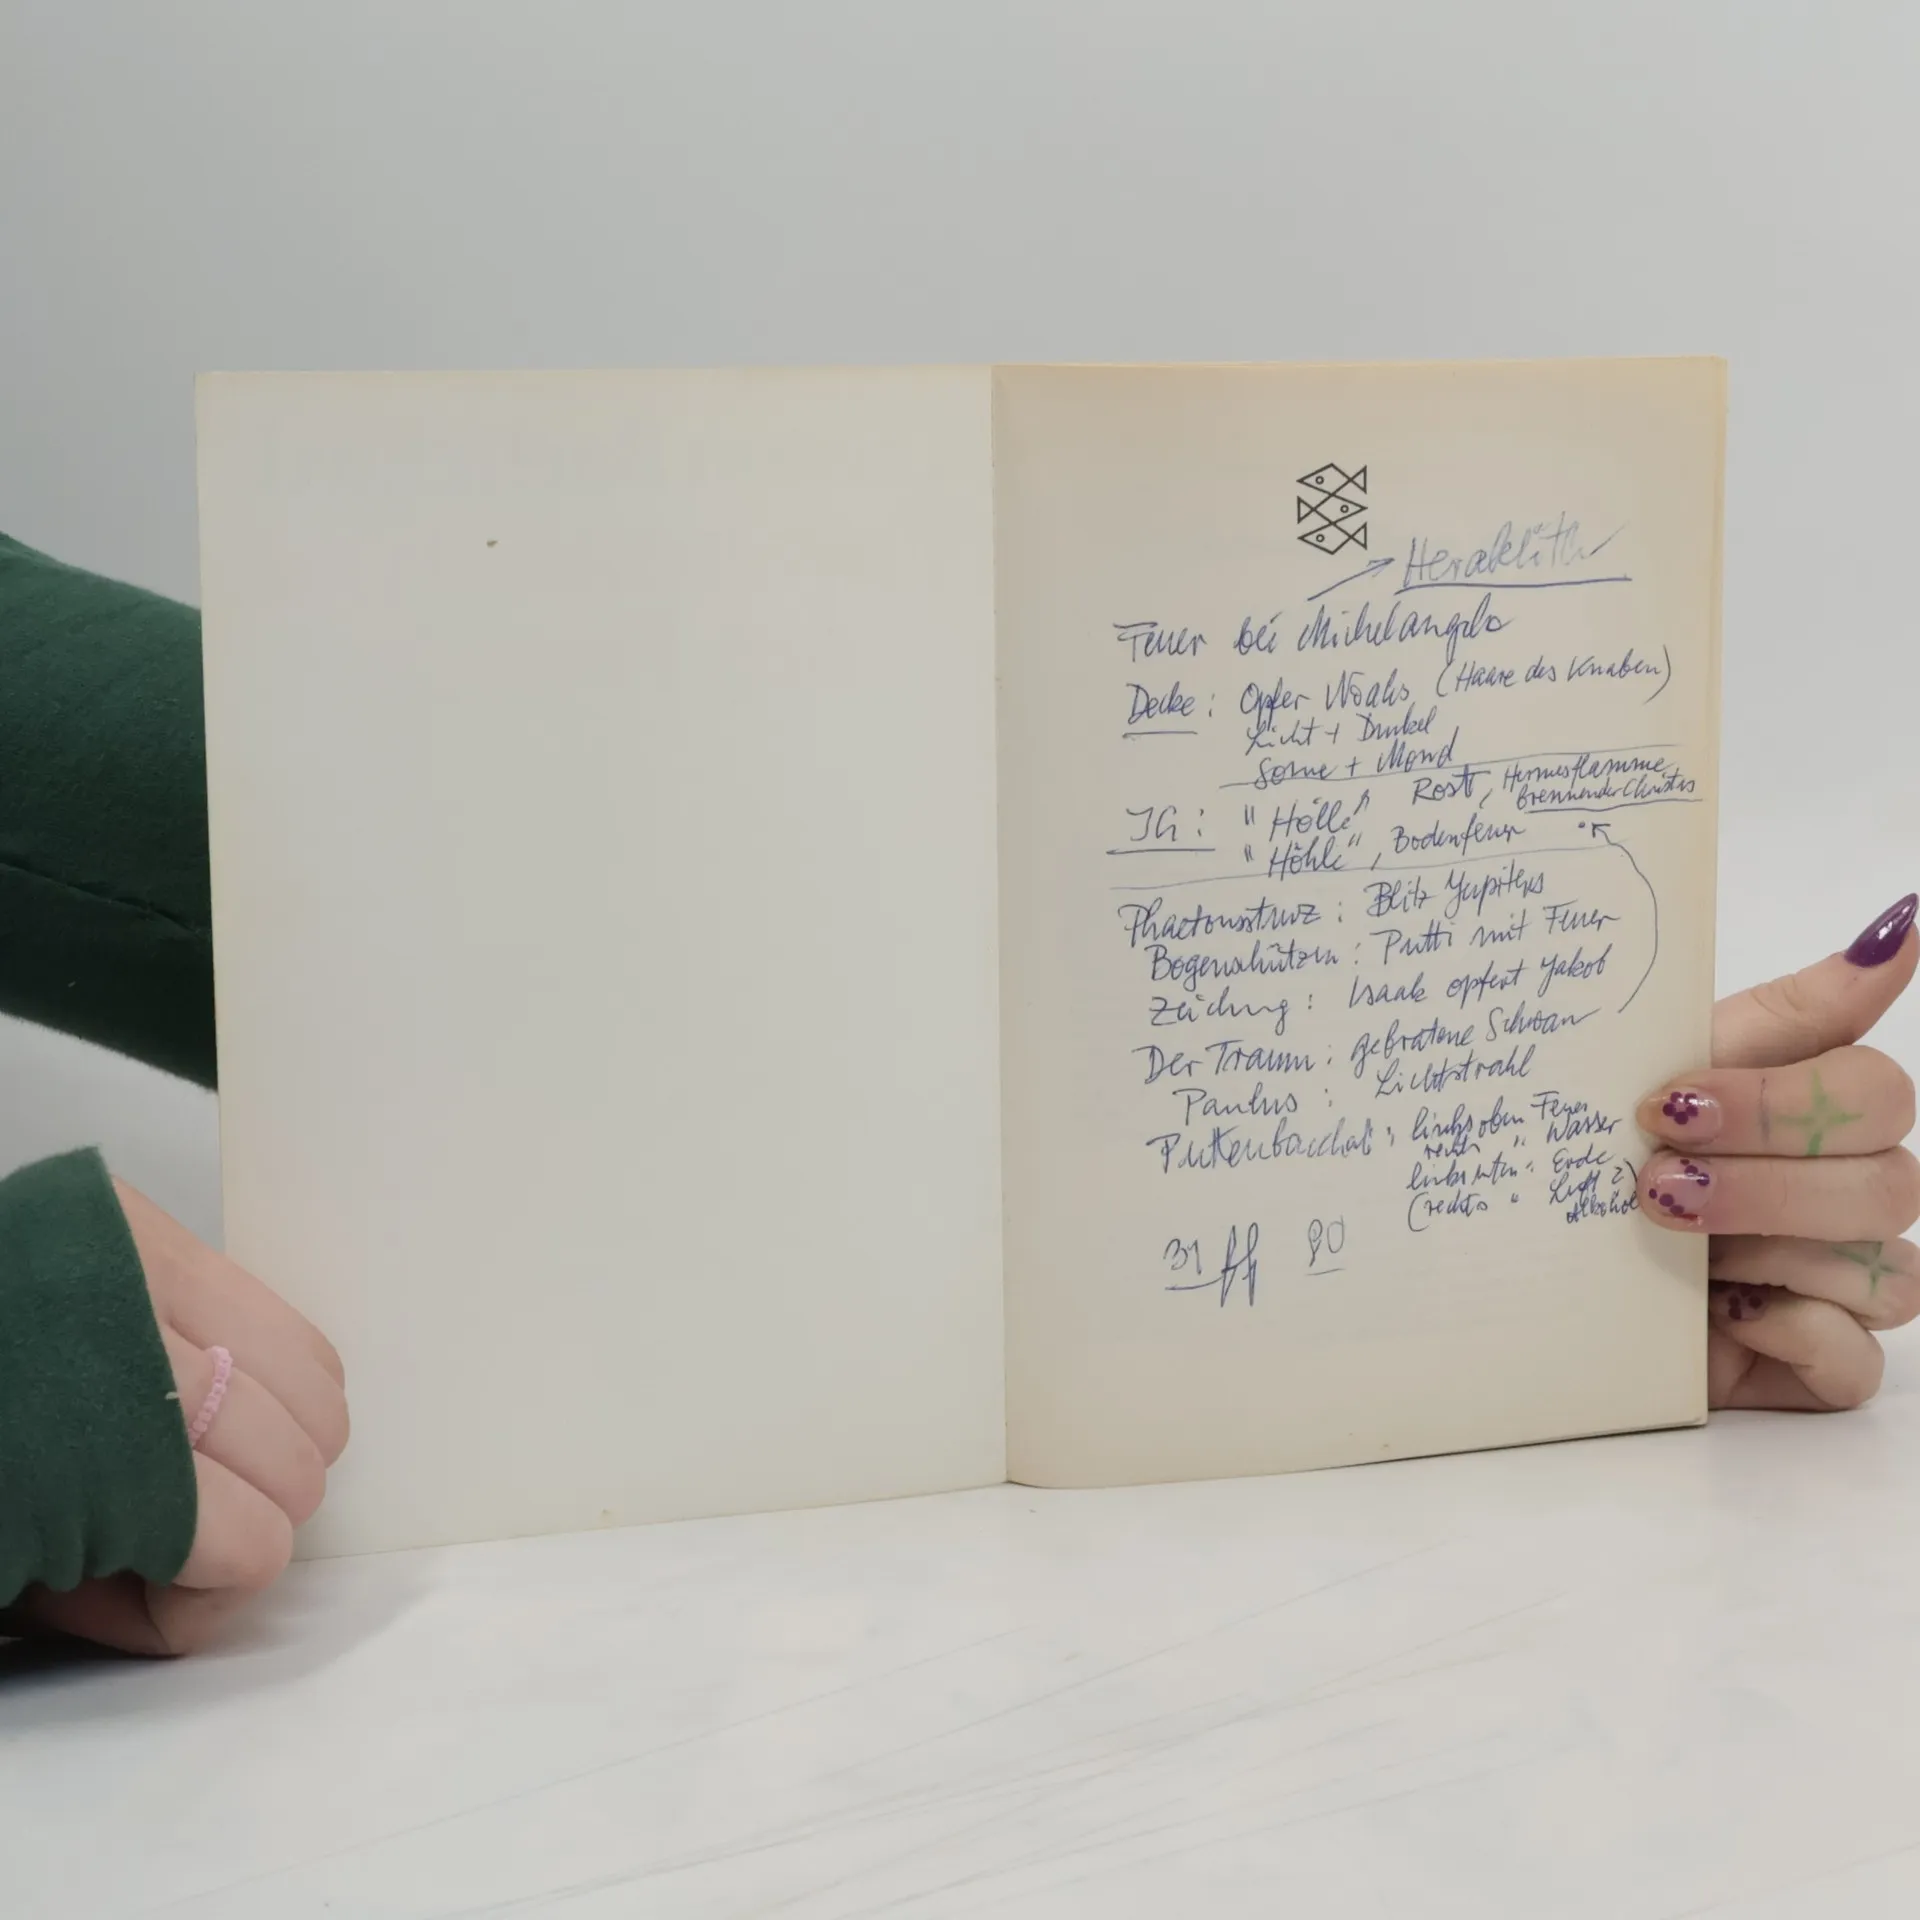 Heraklith
Feuer bei Michelangelo
Decke: Opfer Noahs (Haare des Knaben)
Licht + Dunkel
Sonne + Mond
JG: "Hölle" Rost, Hermesflamme
brennender Christus
"Höhle", Bodenfeuer
Phaetonssturz: Blitz Yupiters
Bogenschützen: Putti mit Feuer
Zeichng: Isaak opfert Yakob
Der Traum: gebratene Schwan
Paulus: Lichtstrahl
Puttenbacchal: links oben Feuer
rechts " Wasser
links unten: Erde
(rechts " Luft?)
Alkohol
31 ff 90